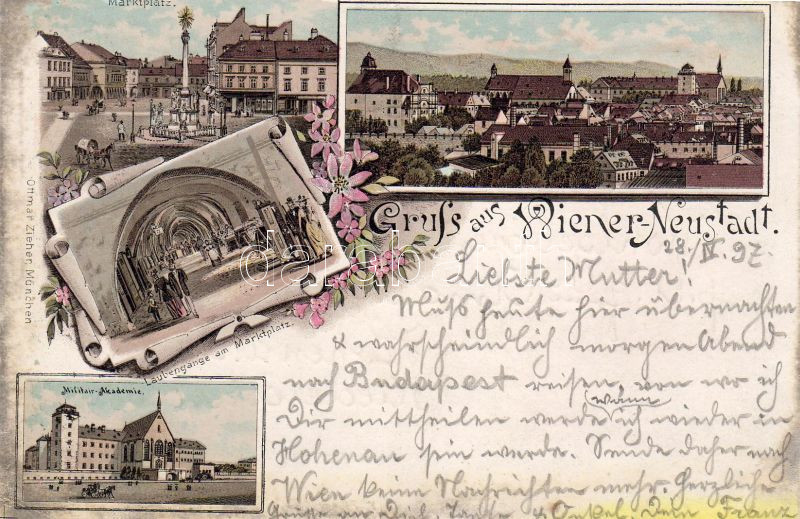 Marktplatz.
Gruß aus Wiener-Neustadt.
28./IV. 97.
Liebste Mutter!
Muss heute hier übernachten
& wahrscheindlich morgen Abend
nach Budapest reisen, von wo ich
Dir mittheilen werde wann ich wieder in
Hohenau sein werde. Sende daher nach
Wien keine Nachrichten mehr. Herzliche
Grüsse an Dich, Tante & Onkel. Dein Franz
Laubengänge am Marktplatz.
Militair-Akademie.
Ottmar Zieher, München